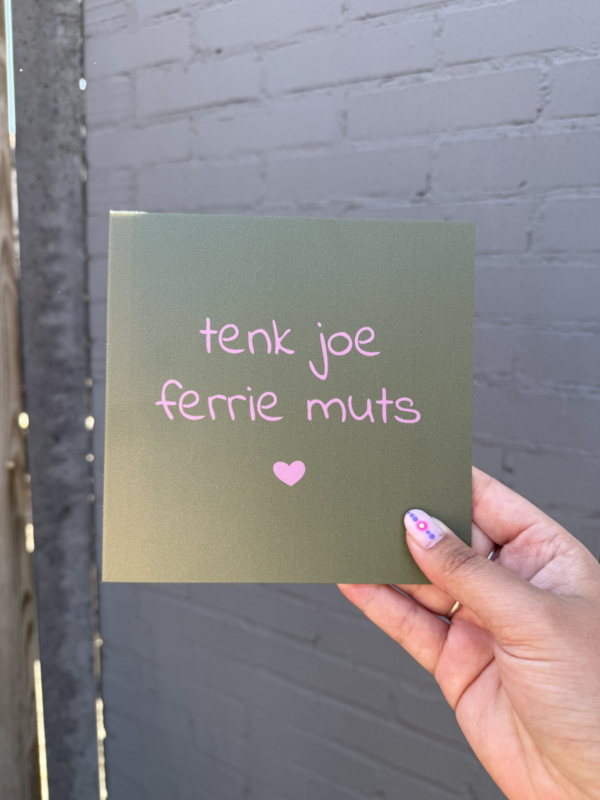 tenk joe
ferrie muts